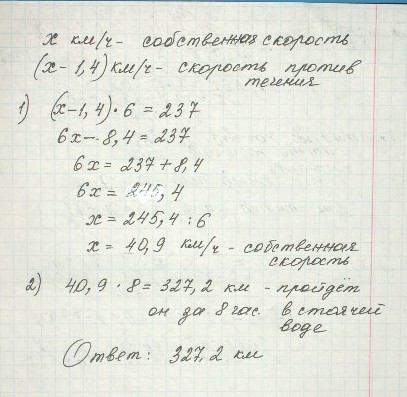 x км/ч - собственная скорость
(x-1,4) км/ч - скорость против
течения
1) (x-1,4)·6 = 237
6x - 8,4 = 237
6x = 237 + 8,4
6x = 245,4
x = 245,4 : 6
x = 40,9 км/ч - собственная
скорость
2) 40,9 · 8 = 327,2 км - пройдёт
он за 8 час. в стоячей
воде
Ответ: 327,2 км